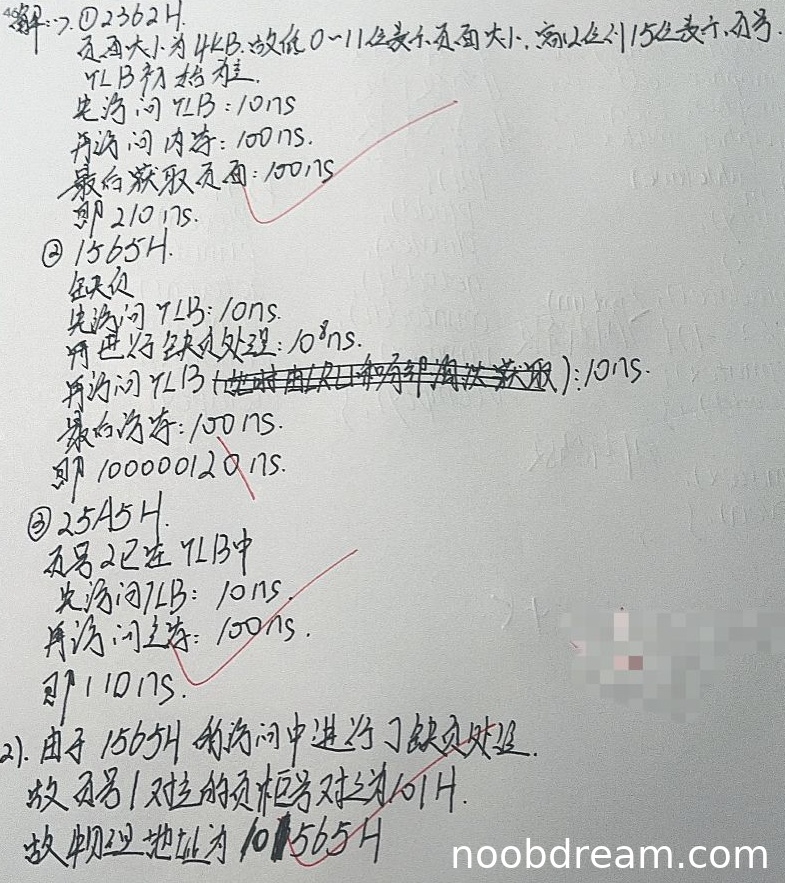 46
解:1). ①2362H.
页面大小为4KB.故低0~11位表示页面大小,高12位到15位表示页号.
TLB初始为空.
先访问TLB:10ns
再访问内存:100ns.
最后获取页面:100ns
即210ns.
② 1565H.
缺页
先访问TLB:10ns.
再进行缺页处理:10⁸ns.
再访问TLB():10ns.
最后访存:100ns.
即100000120ns.
③25A5H.
页号2已在TLB中
先访问TLB:10ns.
再访问主存:100ns.
即110ns.
2).由于1565H的访问中进行了缺页处理.
故页号1对应的页框号对应为101H.
故物理地址为101565H
noobdream.com